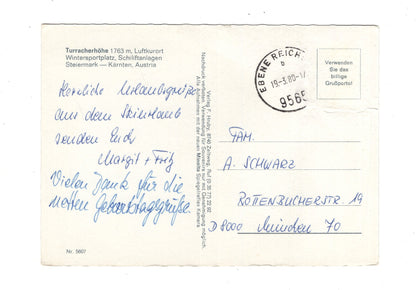 Turracherhöhe 1763 m, Luftkurort
Wintersportplatz, Schiliftanlagen
Steiermark — Kärnten, Austria
Herzliche Urlaubsgrüße
aus dem Skiurlaub
senden Euch
Margit + Fritz
Vielen Dank für die
netten Geburtstagsgrüße.
Nr. 5607
EBENE REICH
19-3.80-1
9565
Verwenden
Sie das
billige
Grußporto!
FAM.
A. SCHWARZ
ROTTENBUCHERSTR 19
D 8000 München 70